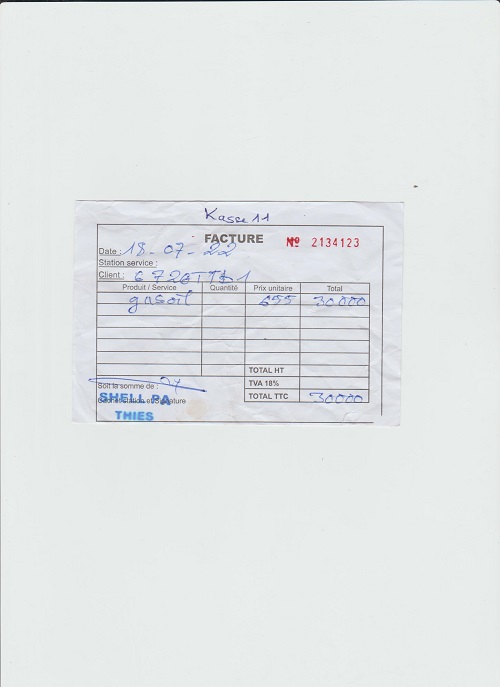 Kasse 11
FACTURE
Nº 2134123
Date : 18-07-22
Station service :
Client :
Produit / Service Quantité Prix unitaire Total
gasoil 655 30000
TOTAL HT
TVA 18%
TOTAL TTC 30000
Soit la somme de :
SHELL PA
THIES